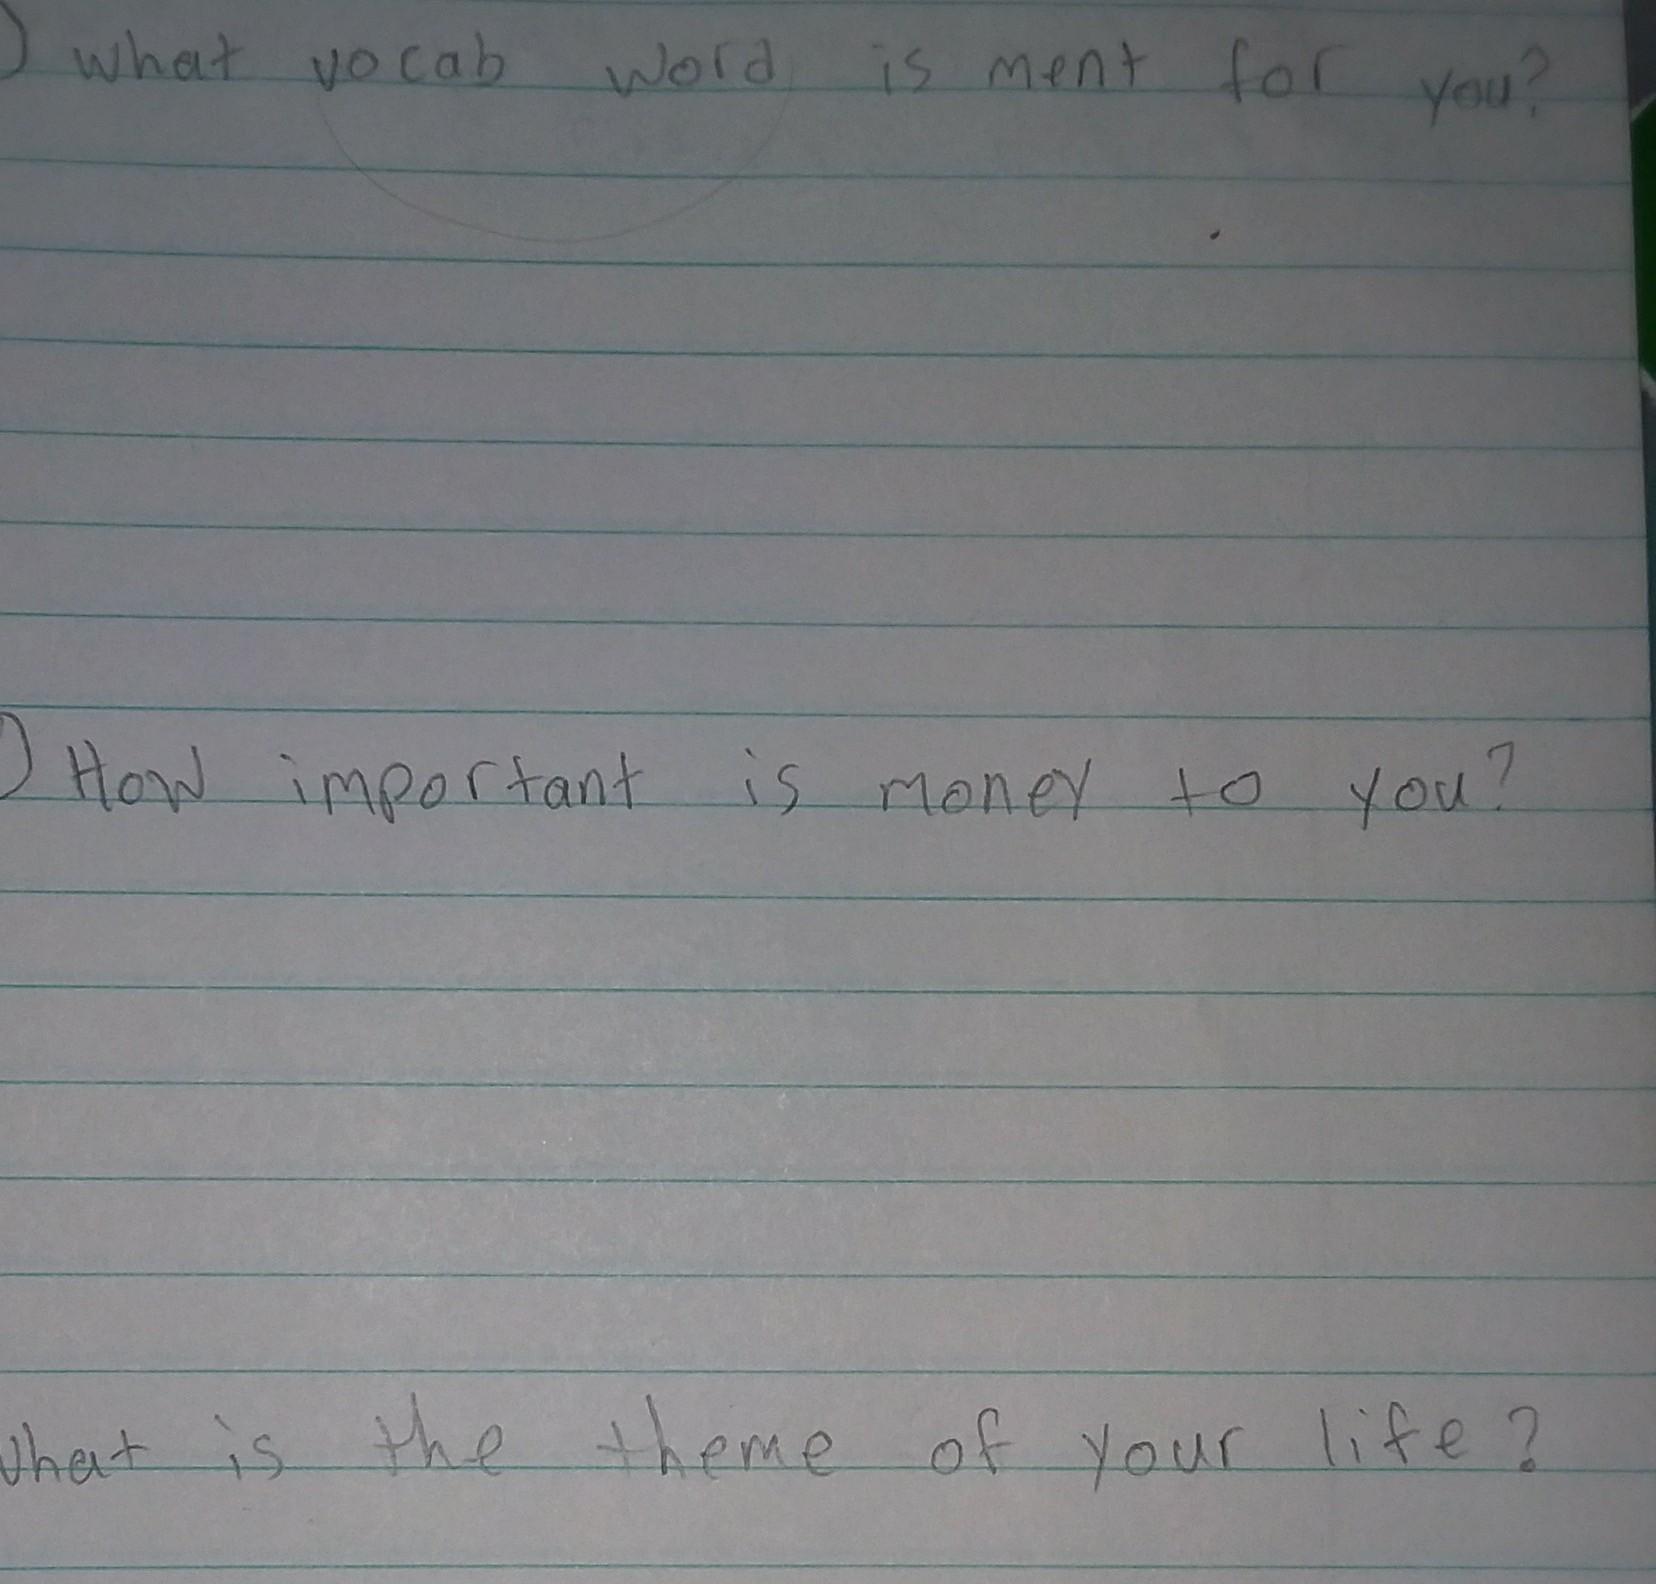 ) what vocab word is ment for you?
) How important is money to you?
what is the theme of your life?